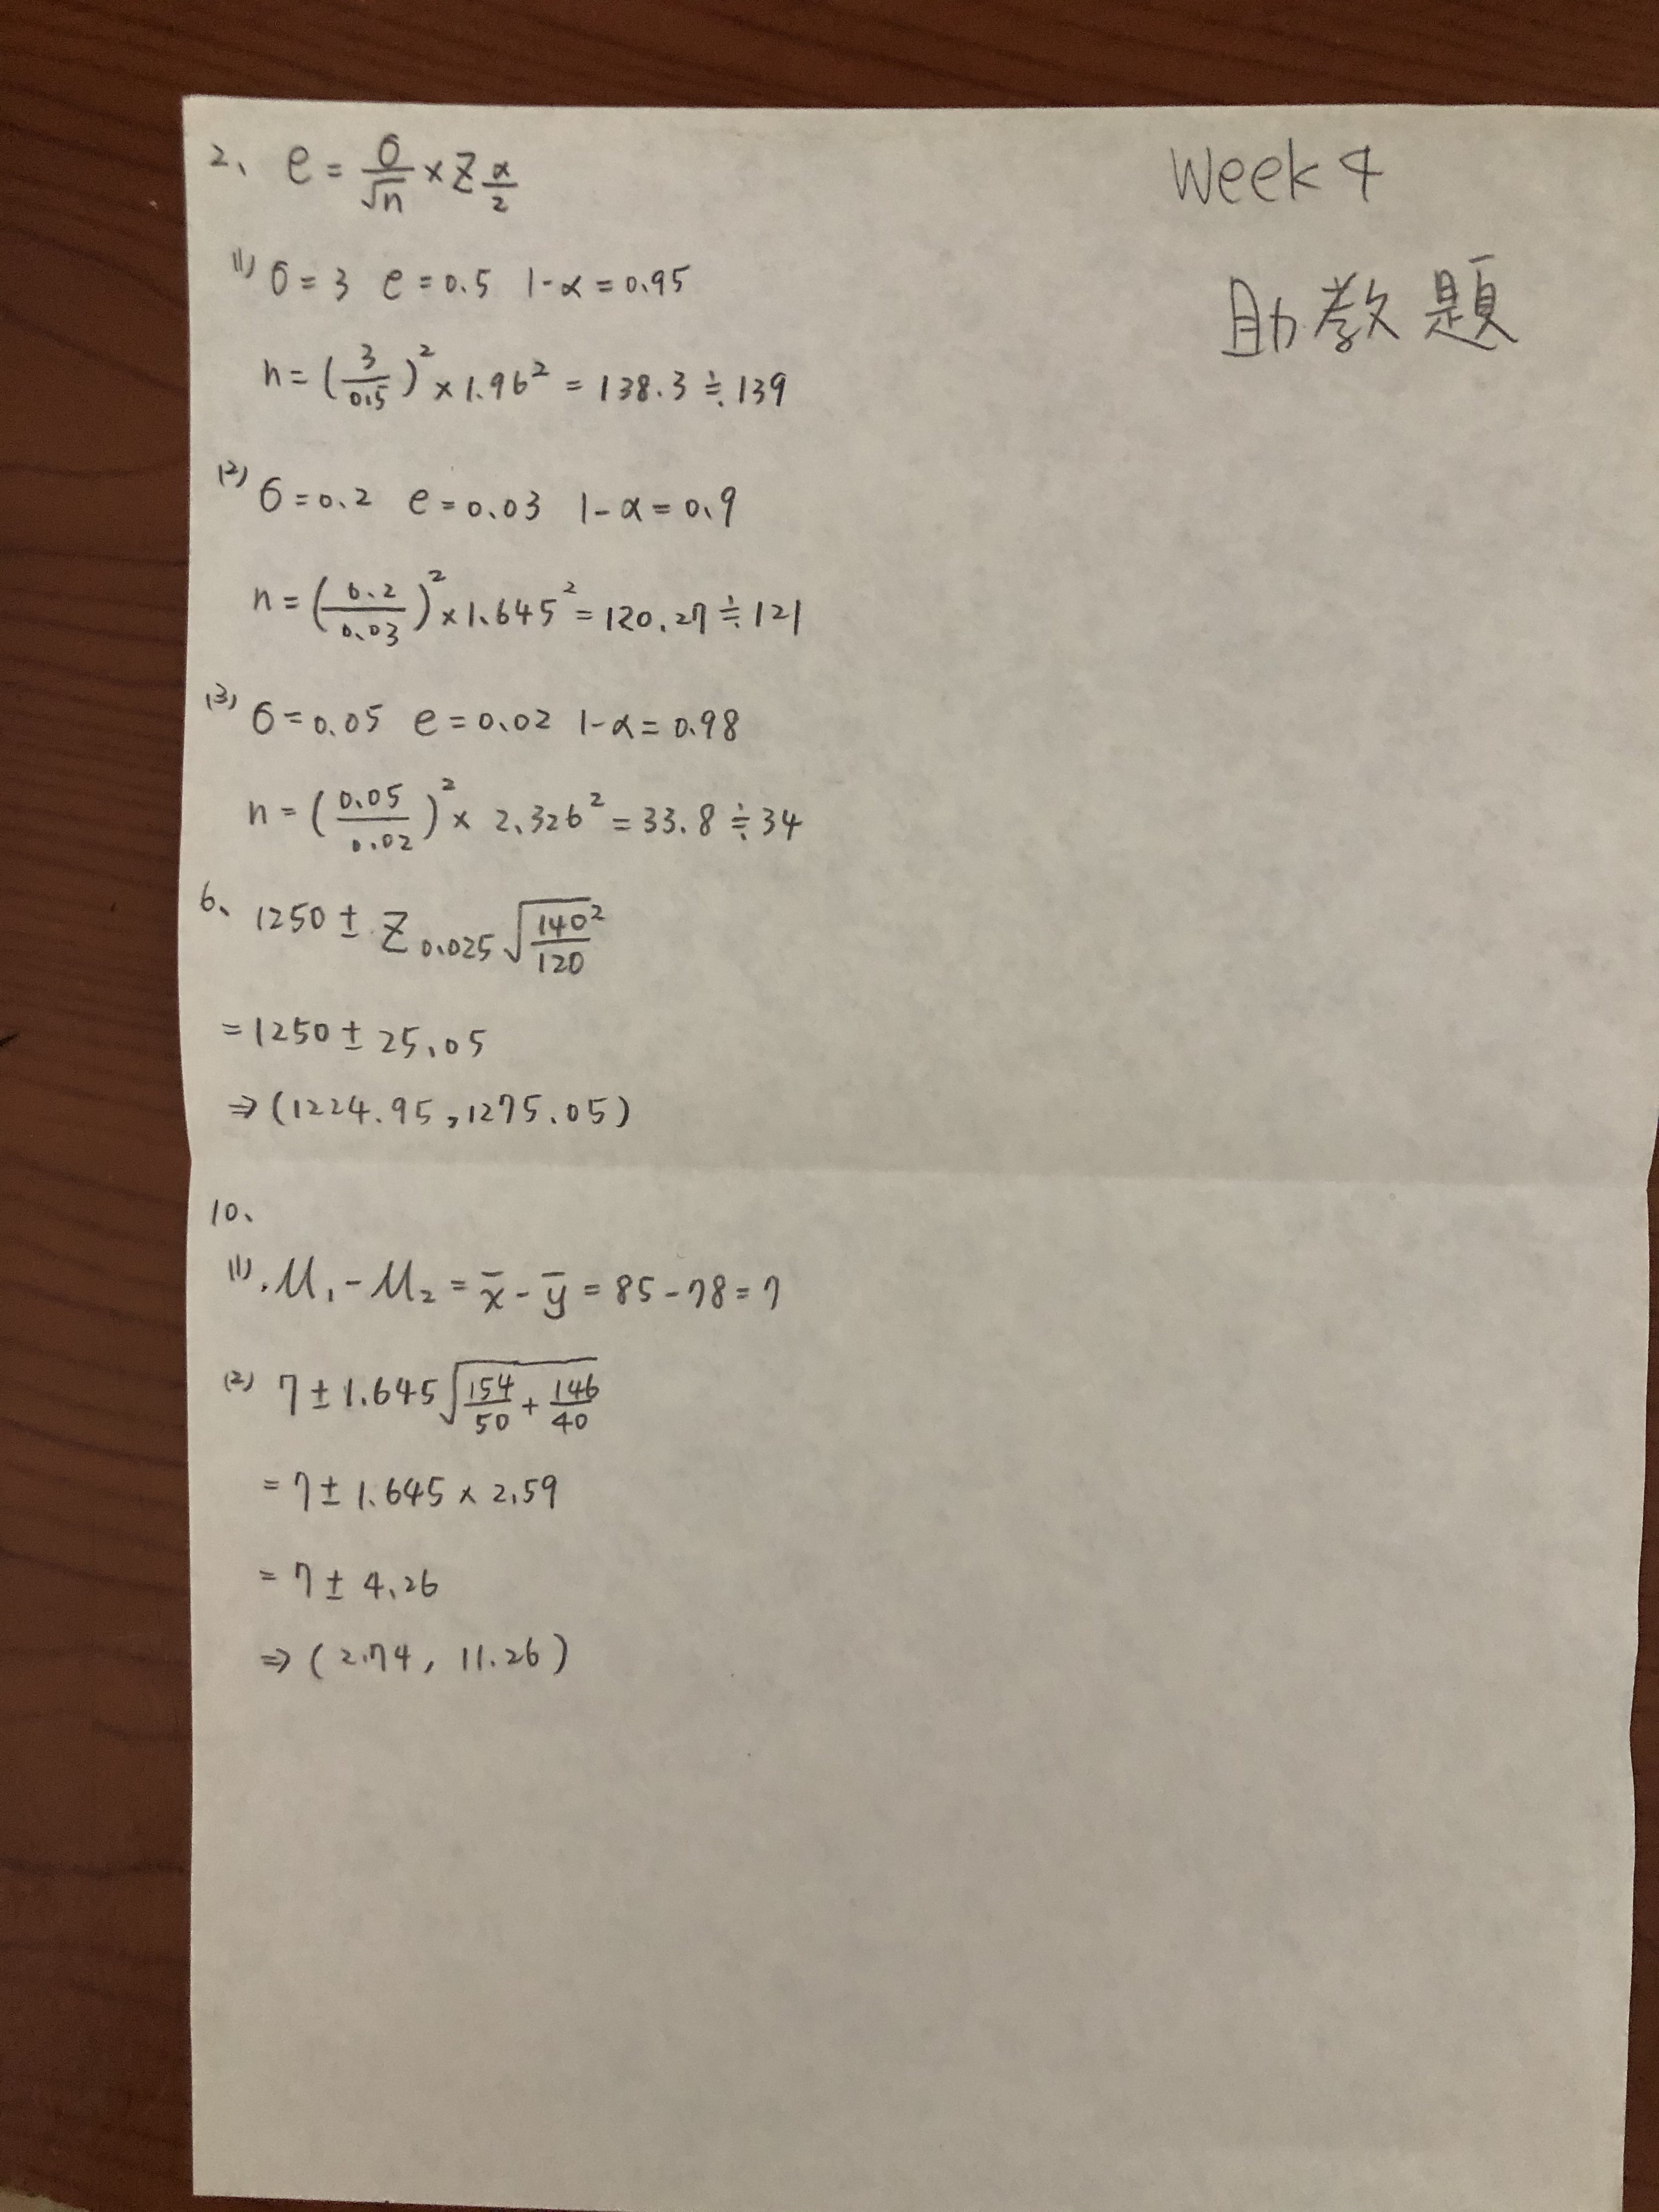 Week 4
助教題
2、 e = σ/√n × Z α/2
(1) σ = 3 e = 0.5 1-α = 0.95
n = (3/0.5)² × 1.96² = 138.3 ≒ 139
(2) σ = 0.2 e = 0.03 1-α = 0.9
n = (0.2/0.03)² × 1.645² = 120.27 ≒ 121
(3) σ = 0.05 e = 0.02 1-α = 0.98
n = (0.05/0.02)² × 2.326² = 33.8 ≒ 34
6、 1250 ± Z 0.025 √(140²/120)
= 1250 ± 25.05
⇒ (1224.95, 1275.05)
10、
(1) μ₁ - μ₂ = x̄ - ȳ = 85 - 78 = 7
(2) 7 ± 1.645 √(154/50 + 146/40)
= 7 ± 1.645 × 2.59
= 7 ± 4.26
⇒ (2.74, 11.26)